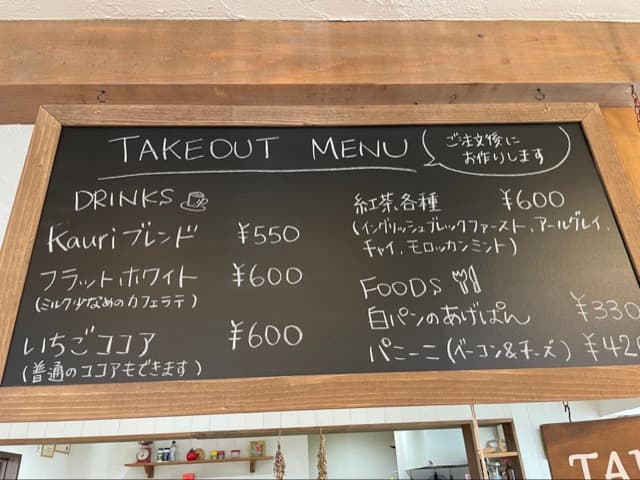 TAKEOUT MENU
ご注文後に
お作りします
DRINKS
Kauriブレンド ¥550
フラットホワイト ¥600
(ミルク少なめのカフェラテ)
いちごココア ¥600
(普通のココアもできます)
紅茶各種 ¥600
(イングリッシュブレックファースト、アールグレイ、
チャイ、モロッカンミント)
FOODS
白パンのあげぱん ¥330
パニーニ(ベーコン&チーズ) ¥420